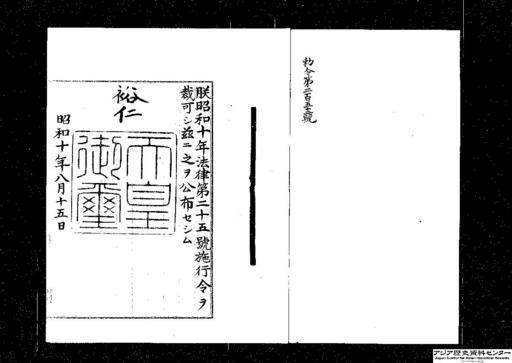 勅令第二百五十號
朕昭和十年法律第二十五號施行令ヲ
裁可シ茲ニ之ヲ公布セシム
裕仁
天皇
御璽
昭和十年八月十五日
アジア歴史資料センター
Japan Center for Asian Historical Records